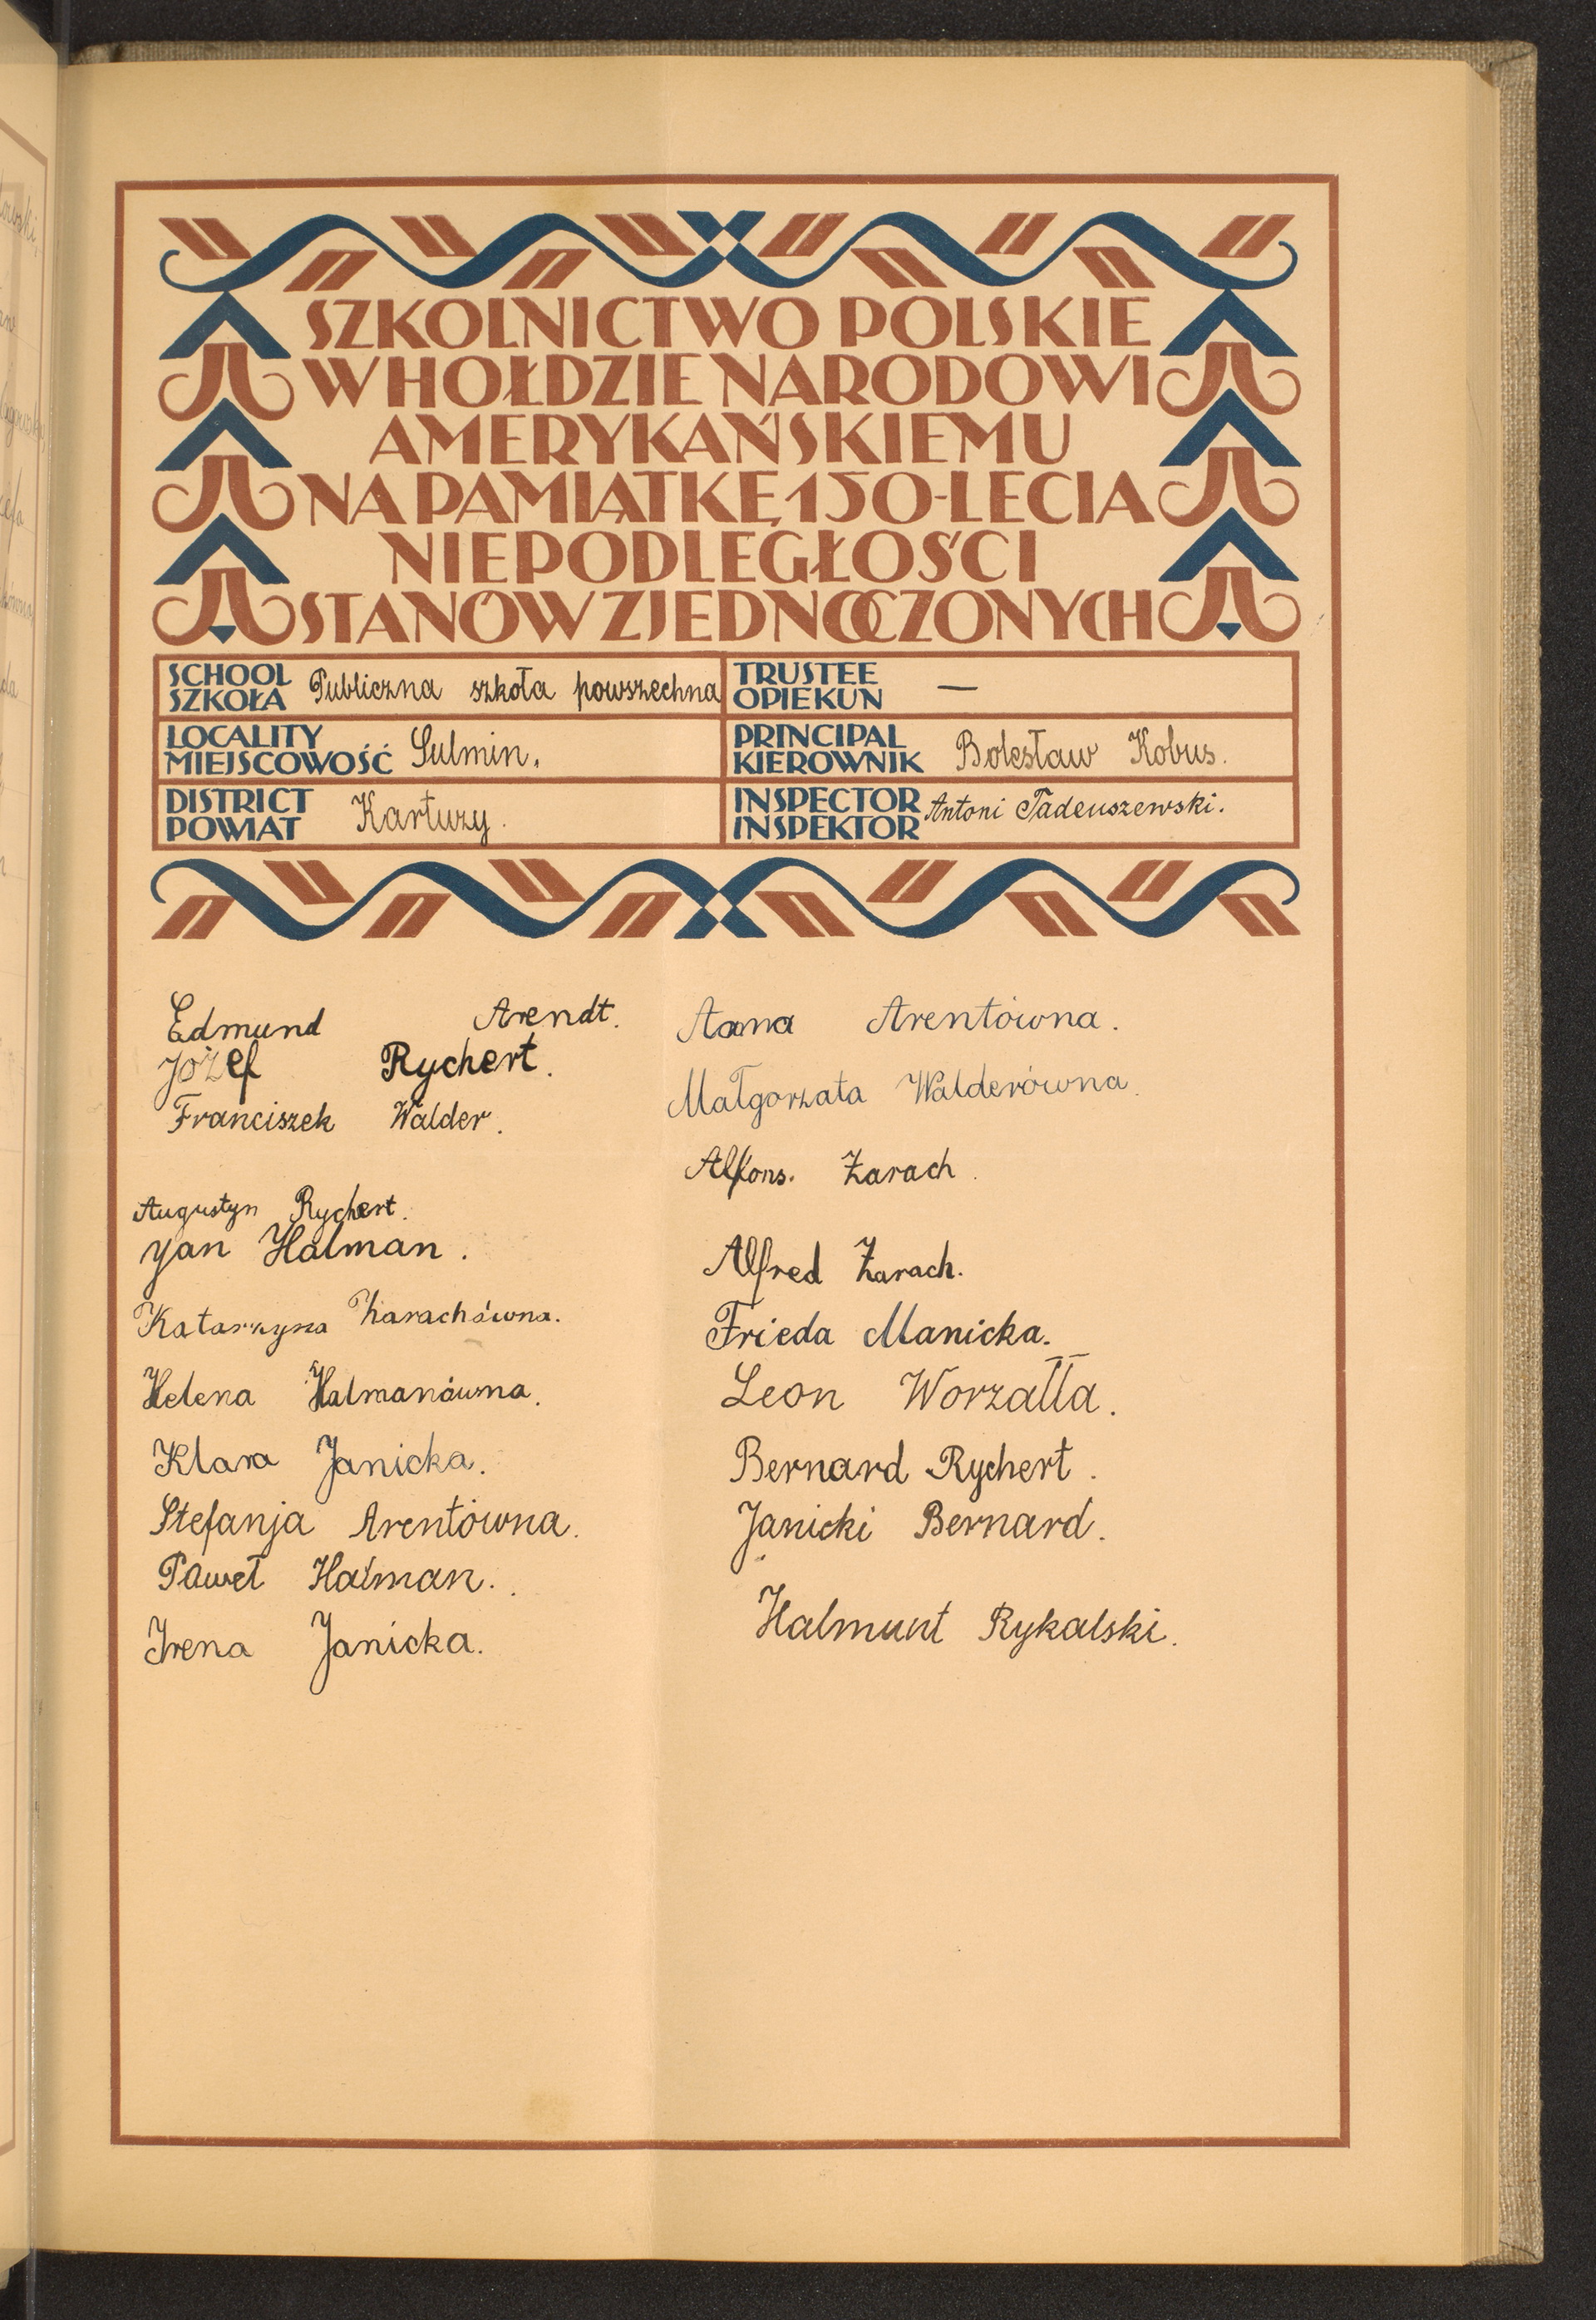 SZKOLNICTWO POLSKIE
W HOŁDZIE NARODOWI
AMERYKAŃSKIEMU
NA PAMIĄTKĘ 150-LECIA
NIEPODLEGŁOŚCI
STANÓW ZJEDNOCZONYCH
SCHOOL
SZKOŁA Publiczna szkoła powszechna
TRUSTEE
OPIEKUN —
LOCALITY
MIEJSCOWOŚĆ Sulmin.
PRINCIPAL
KIEROWNIK Bolesław Kobus.
DISTRICT
POWIAT Kartuzy.
INSPECTOR
INSPEKTOR Antoni Tadeuszewski.
Edmund Arendt.
Józef Rychert.
Franciszek Walder.
Augustyn Rychert.
Jan Halman.
Katarzyna Żarachówna.
Helena Halmanówna.
Klara Janicka.
Stefanja Arentówna.
Paweł Halman.
Irena Janicka.
Anna Arentówna.
Małgorzata Walderówna.
Alfons. Żarach.
Alfred Żarach.
Frieda Manicka.
Leon Worzałła.
Bernard Rychert.
Janicki Bernard.
Halmunt Rykalski.